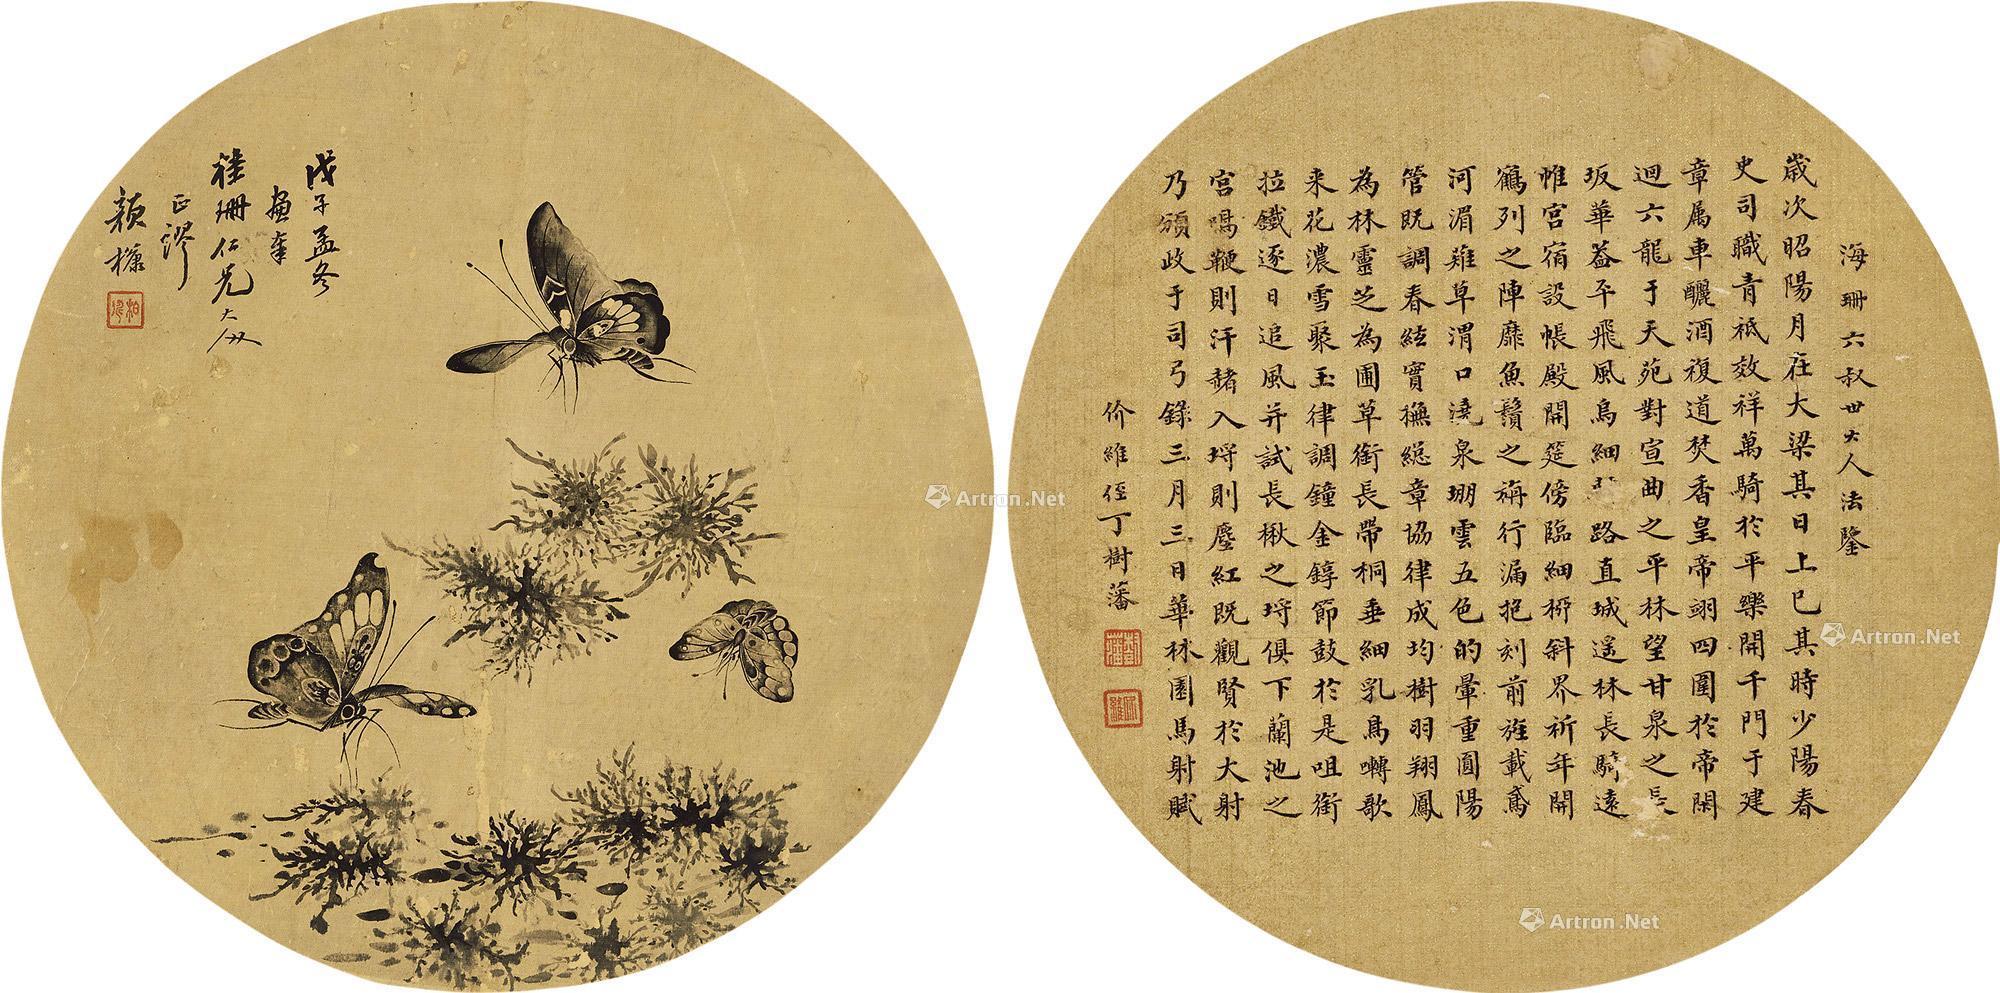 戊子孟冬
画奉
桂珊仁兄大人
正謬
穎樵
海珊六叔世大人法鑒
歲次昭陽月在大梁其日上巳其時少陽春
史司職青祇效祥萬騎於平樂開千門于建
章属車釃酒複道焚香皇帝翊四圍於帝閑
迴六龍于天苑對宣曲之平林望甘泉之長
坂華葢平飛風烏細路直城遥林長騎遠
帷宮宿設帳殿開筵傍臨細栁斜界祈年開
鶴列之陣靡魚鬚之旃行漏抱刻前旌載鳶
河湄薙草渭口澆泉堋雲五色的暈重圓陽
管既調春絃實撫緫章協律成均樹羽翔鳳
為林靈芝為圃草銜長帶桐垂細乳鳥囀歌
来花濃雪聚玉律調鐘金錞節鼓於是咀銜
拉鐵逐日追風并試長楸之埒俱下蘭池之
宮鳴鞭則汗赭入埒則塵紅既觀賢於大射
乃頒政于司弓錄三月三日華林園馬射賦
价維侄丁樹藩
Artron.Net
Artron.Net
Artron.Net